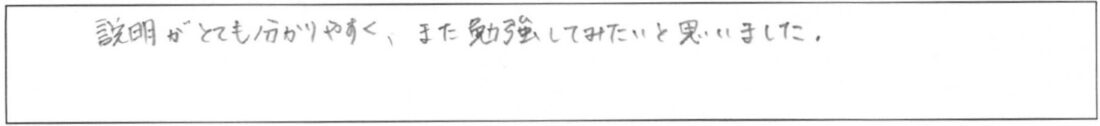 説明がとても分かりやすく、また勉強してみたいと思いました.